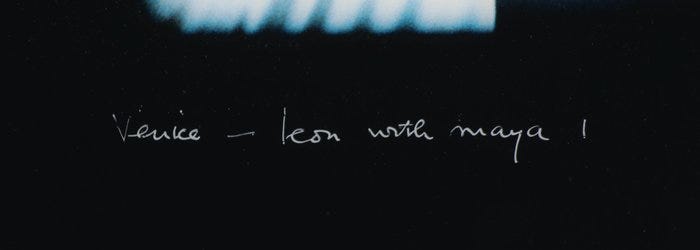 Venice – Icon with maya 1